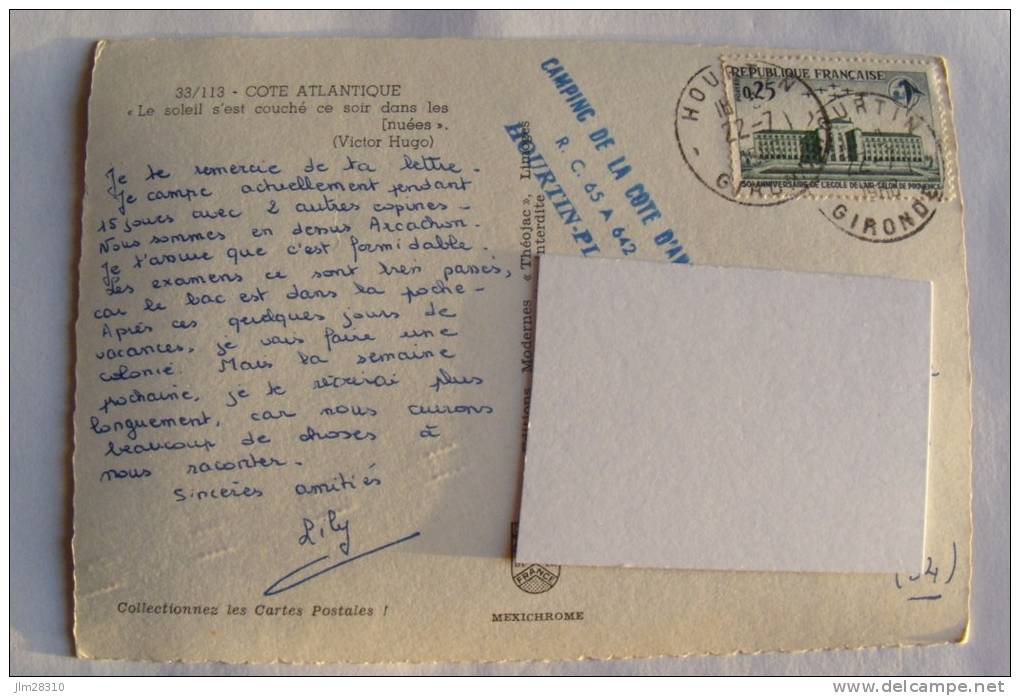 33/113 - COTE ATLANTIQUE
« Le soleil s'est couché ce soir dans les
[nuées ».
(Victor Hugo)
Je te remercie de ta lettre.
Je campe actuellement pendant
15 jours avec 2 autres copines -
Nous sommes en dessus Arcachon.
Je t'assure que c'est formidable.
Les examens ce sont bien passés,
car le bac est dans la poche -
Après ces quelques jours de
vacances, je vais faire une
colonie. Mais la semaine
prochaine, je te récrirai plus
longuement, car nous aurons
beaucoup de choses à
nous raconter -
Sincères amitiés
Lily
Collectionnez les Cartes Postales !
Editions Modernes « Théojac », Limoges
Interdite
FRANCE
MEXICHROME
CAMPING DE LA COTE D'A
R. C. 65 A 642
HOURTIN-PL
REPUBLIQUE FRANÇAISE
0,25
50e ANNIVERSAIRE DE L'ECOLE DE L'AIR-SALON DE PROVENCE
HOURTIN
22-7
GIRONDE
HOURTIN
22
GIRONDE
jlm28310
www.delcampe.net